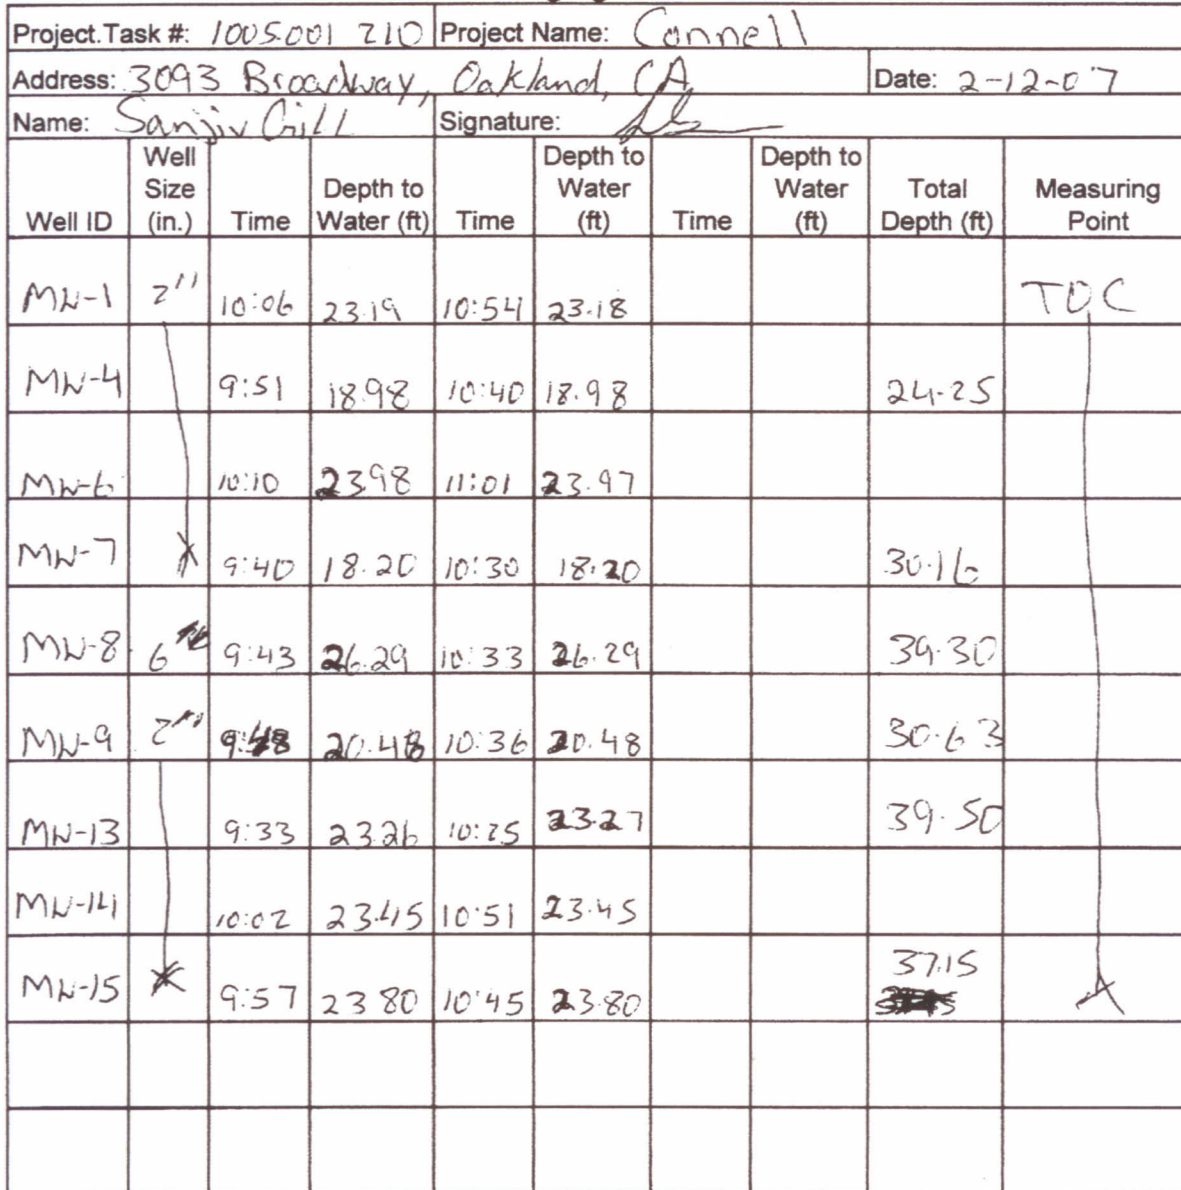 Project.Task #: 1005.001 210 Project Name: Connell
Address: 3093 Broadway, Oakland, CA Date: 2-12-07
Name: Sanjiv Gill Signature:
Well ID Well Size (in.) Time Depth to Water (ft) Time Depth to Water (ft) Time Depth to Water (ft) Total Depth (ft) Measuring Point
MW-1 2" 10:06 23.19 10:54 23.18 TOC
MW-4 9:51 18.98 10:40 18.98 24.25
MW-6 10:10 23.98 11:01 23.97
MW-7 9:40 18.20 10:30 18.20 30.16
MW-8 6 9:43 26.29 10:33 26.29 39.30
MW-9 2" 9:48 20.48 10:36 20.48 30.63
MW-13 9:33 23.26 10:25 23.27 39.50
MW-14 10:02 23.45 10:51 23.45
MW-15 9:57 23.80 10:45 23.80 37.15